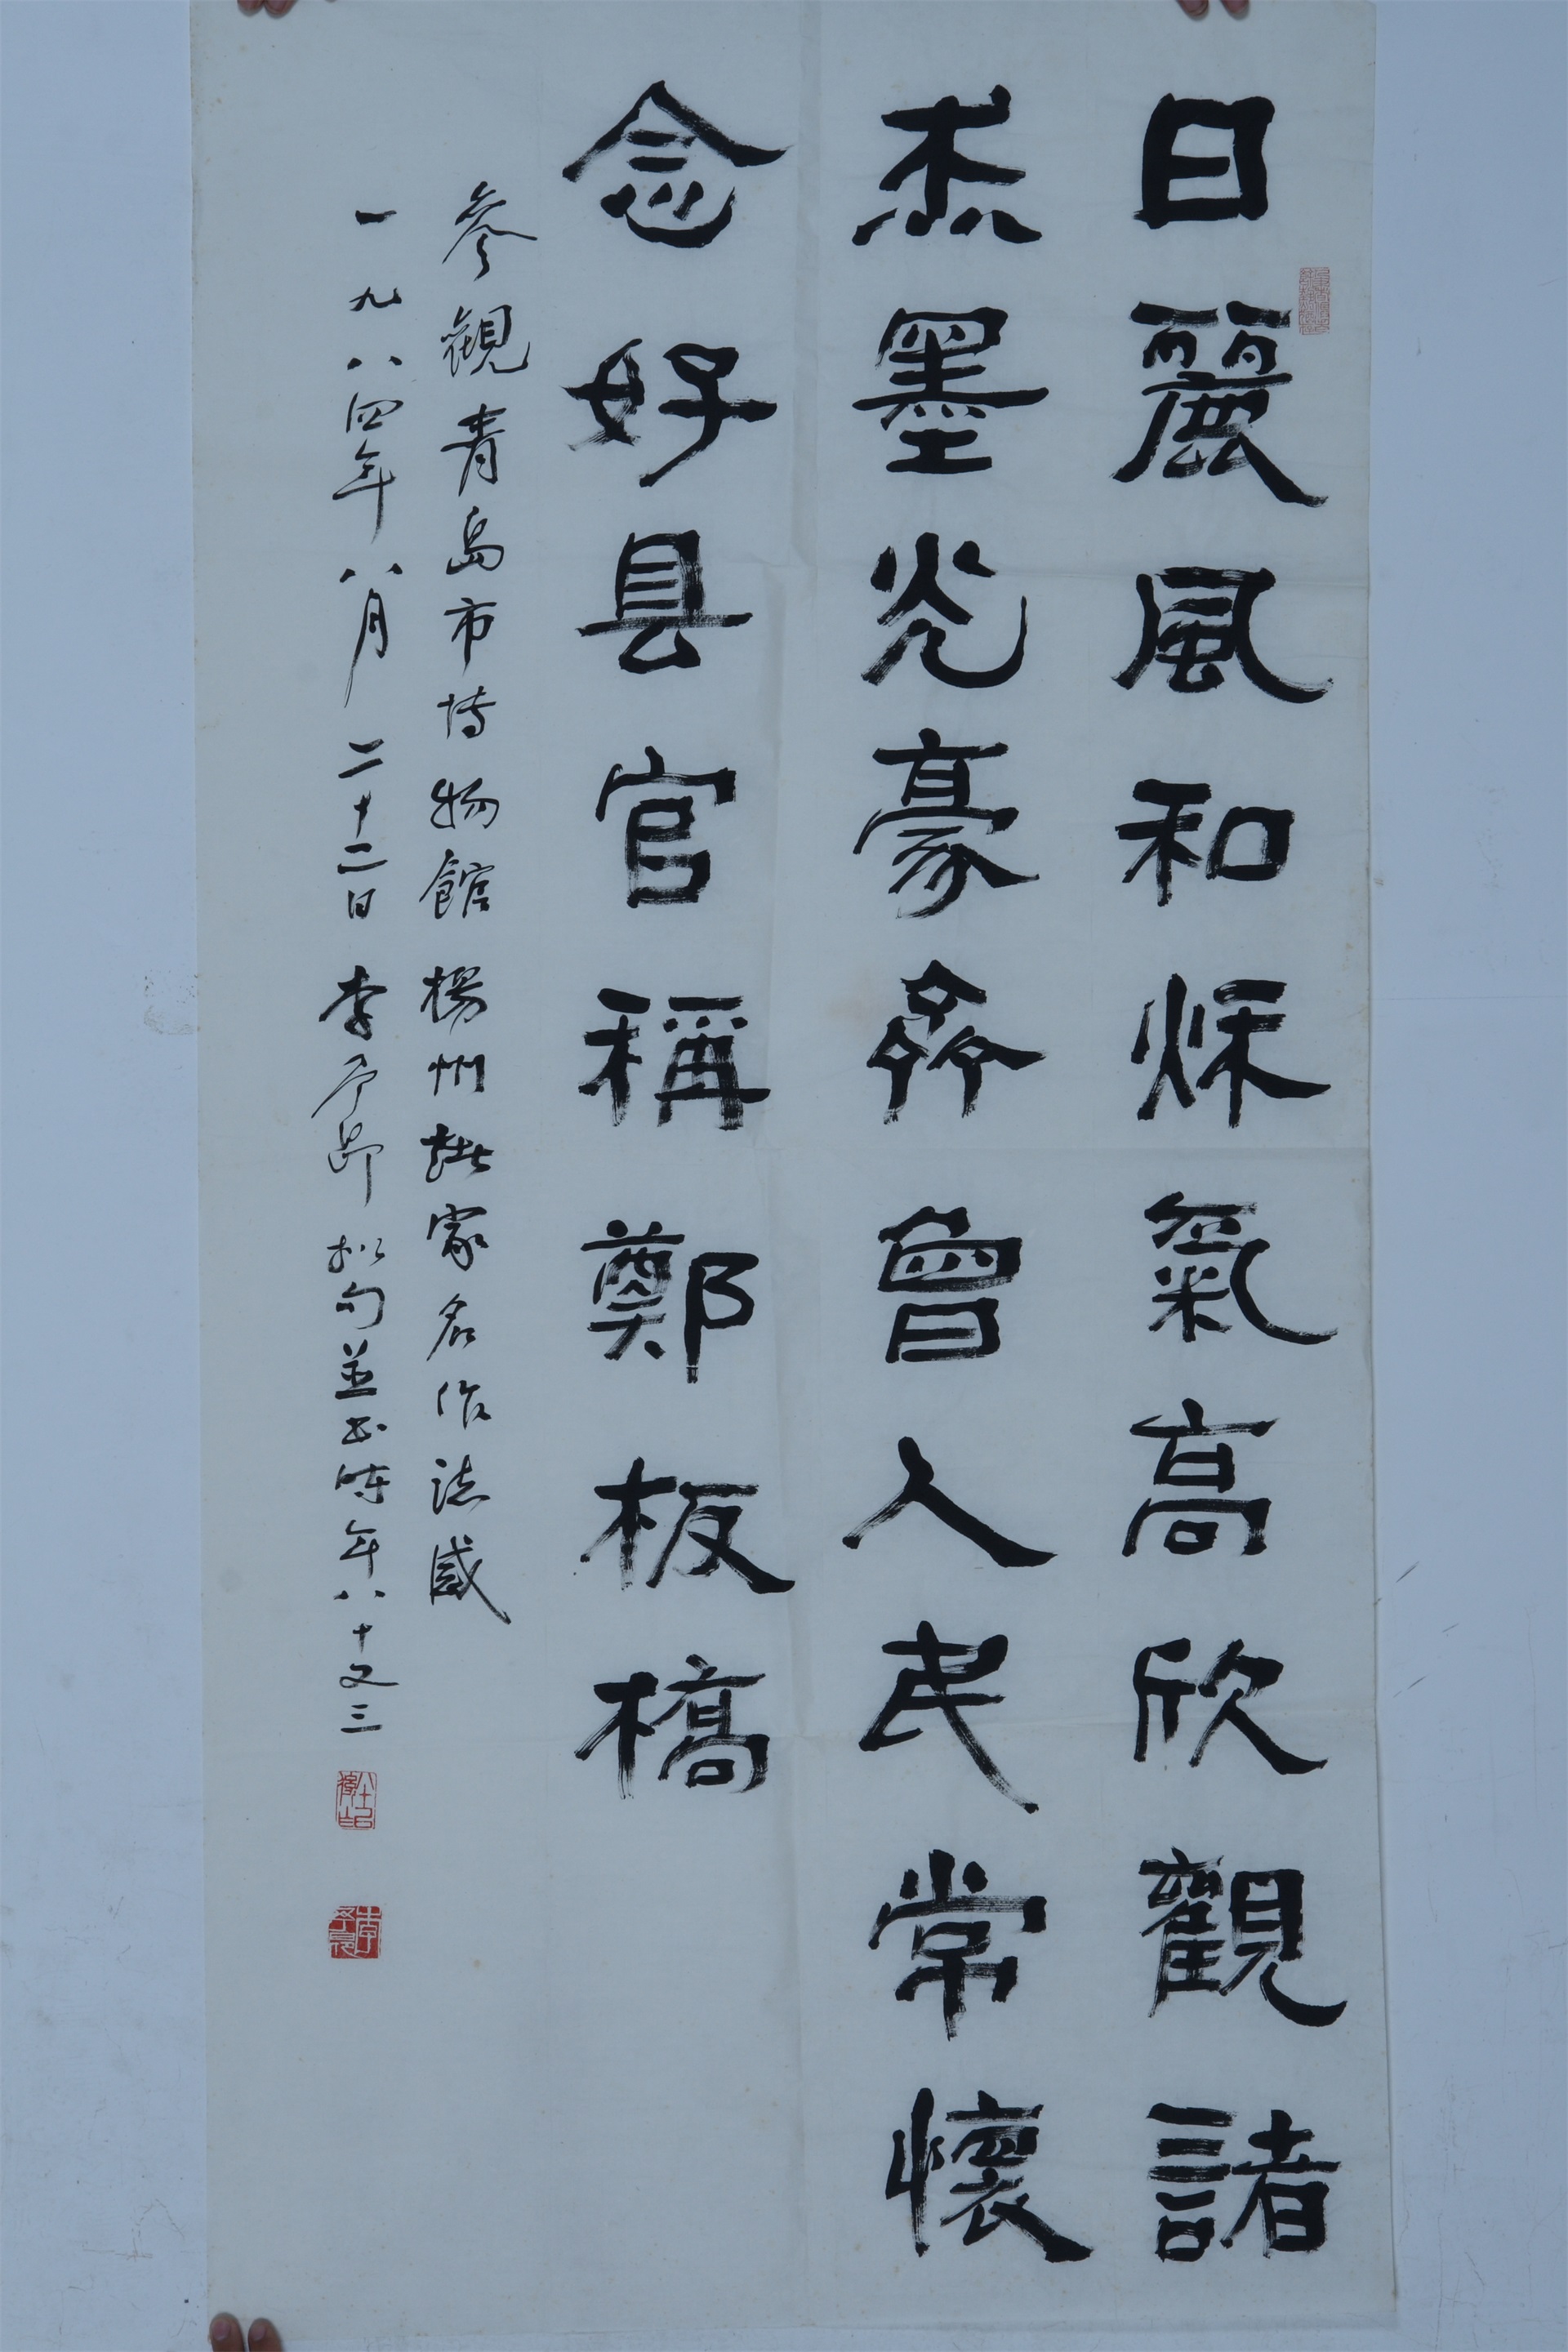 日麗風和秌氣高欣觀諸
杰墨光豪齊魯人民常懷
念好县官稱鄭板橋
參觀青島市博物館楊州家名作誌感
一九八四年八月二十二日李予昂拟句並书時年八十又三
李予昂